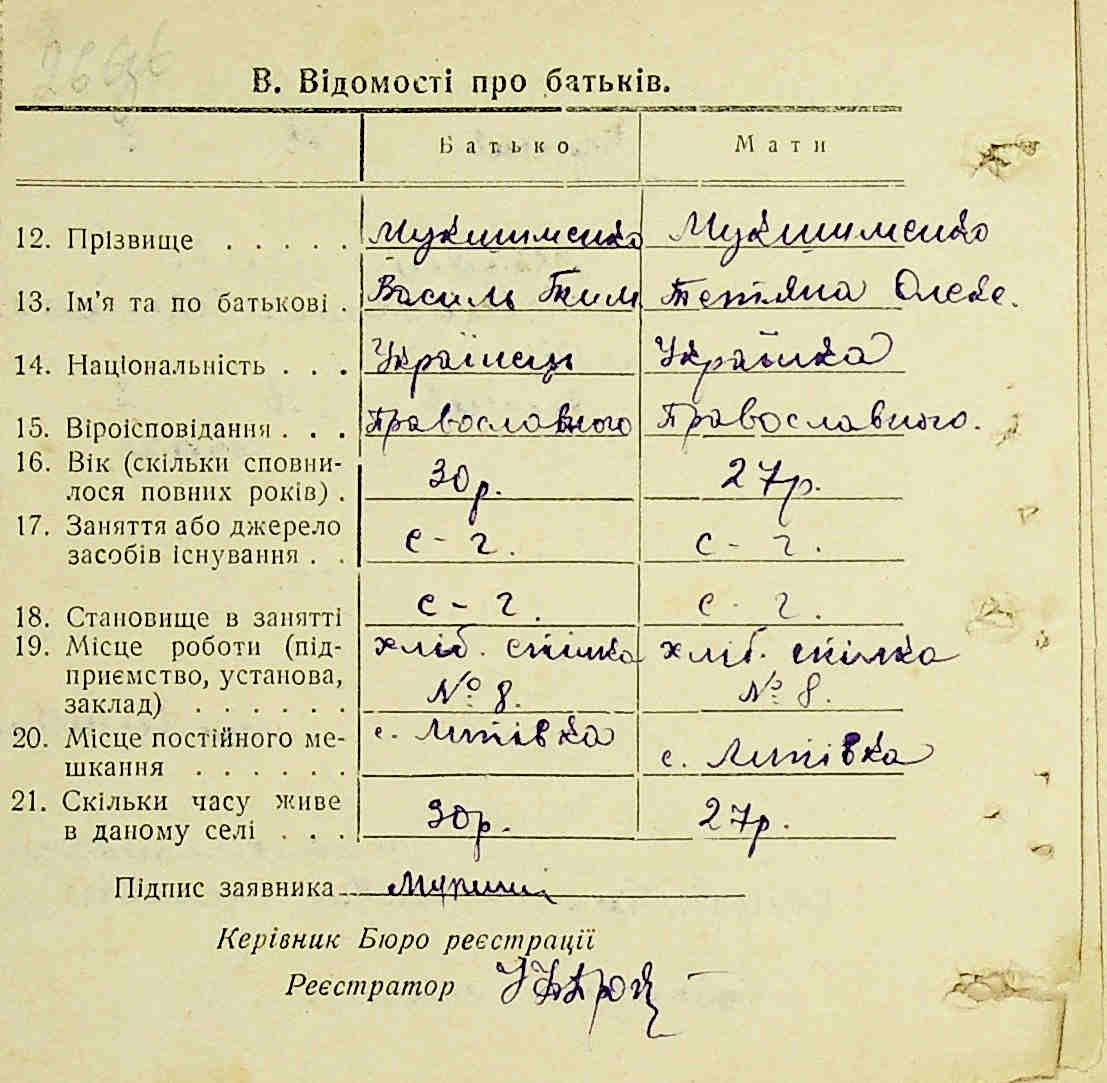 В. Відомості про батьків.
Батько Мати
12. Прізвище . . . . . Мукшименко Мукшименко
13. Ім'я та по батькові . Василь Тим Тетяна Олекс.
14. Національність . . . Українець Українка
15. Віроісповідання . . . Православного Православного.
16. Вік (скільки сповни-
лося повних років) . 30р. 27р.
17. Заняття або джерело
засобів існування . . с - г. с - г.
18. Становище в занятті с - г. с - г.
19. Місце роботи (під- хліб. спілка хліб. спілка
приємство, установа,
заклад) . . . . . . № 8. № 8.
20. Місце постійного ме- с. Липівка
шкання . . . . . . с. Липівка
21. Скільки часу живе
в даному селі . . . 30р. 27р.
Підпис заявника
Керівник Бюро реєстрації
Реєстратор